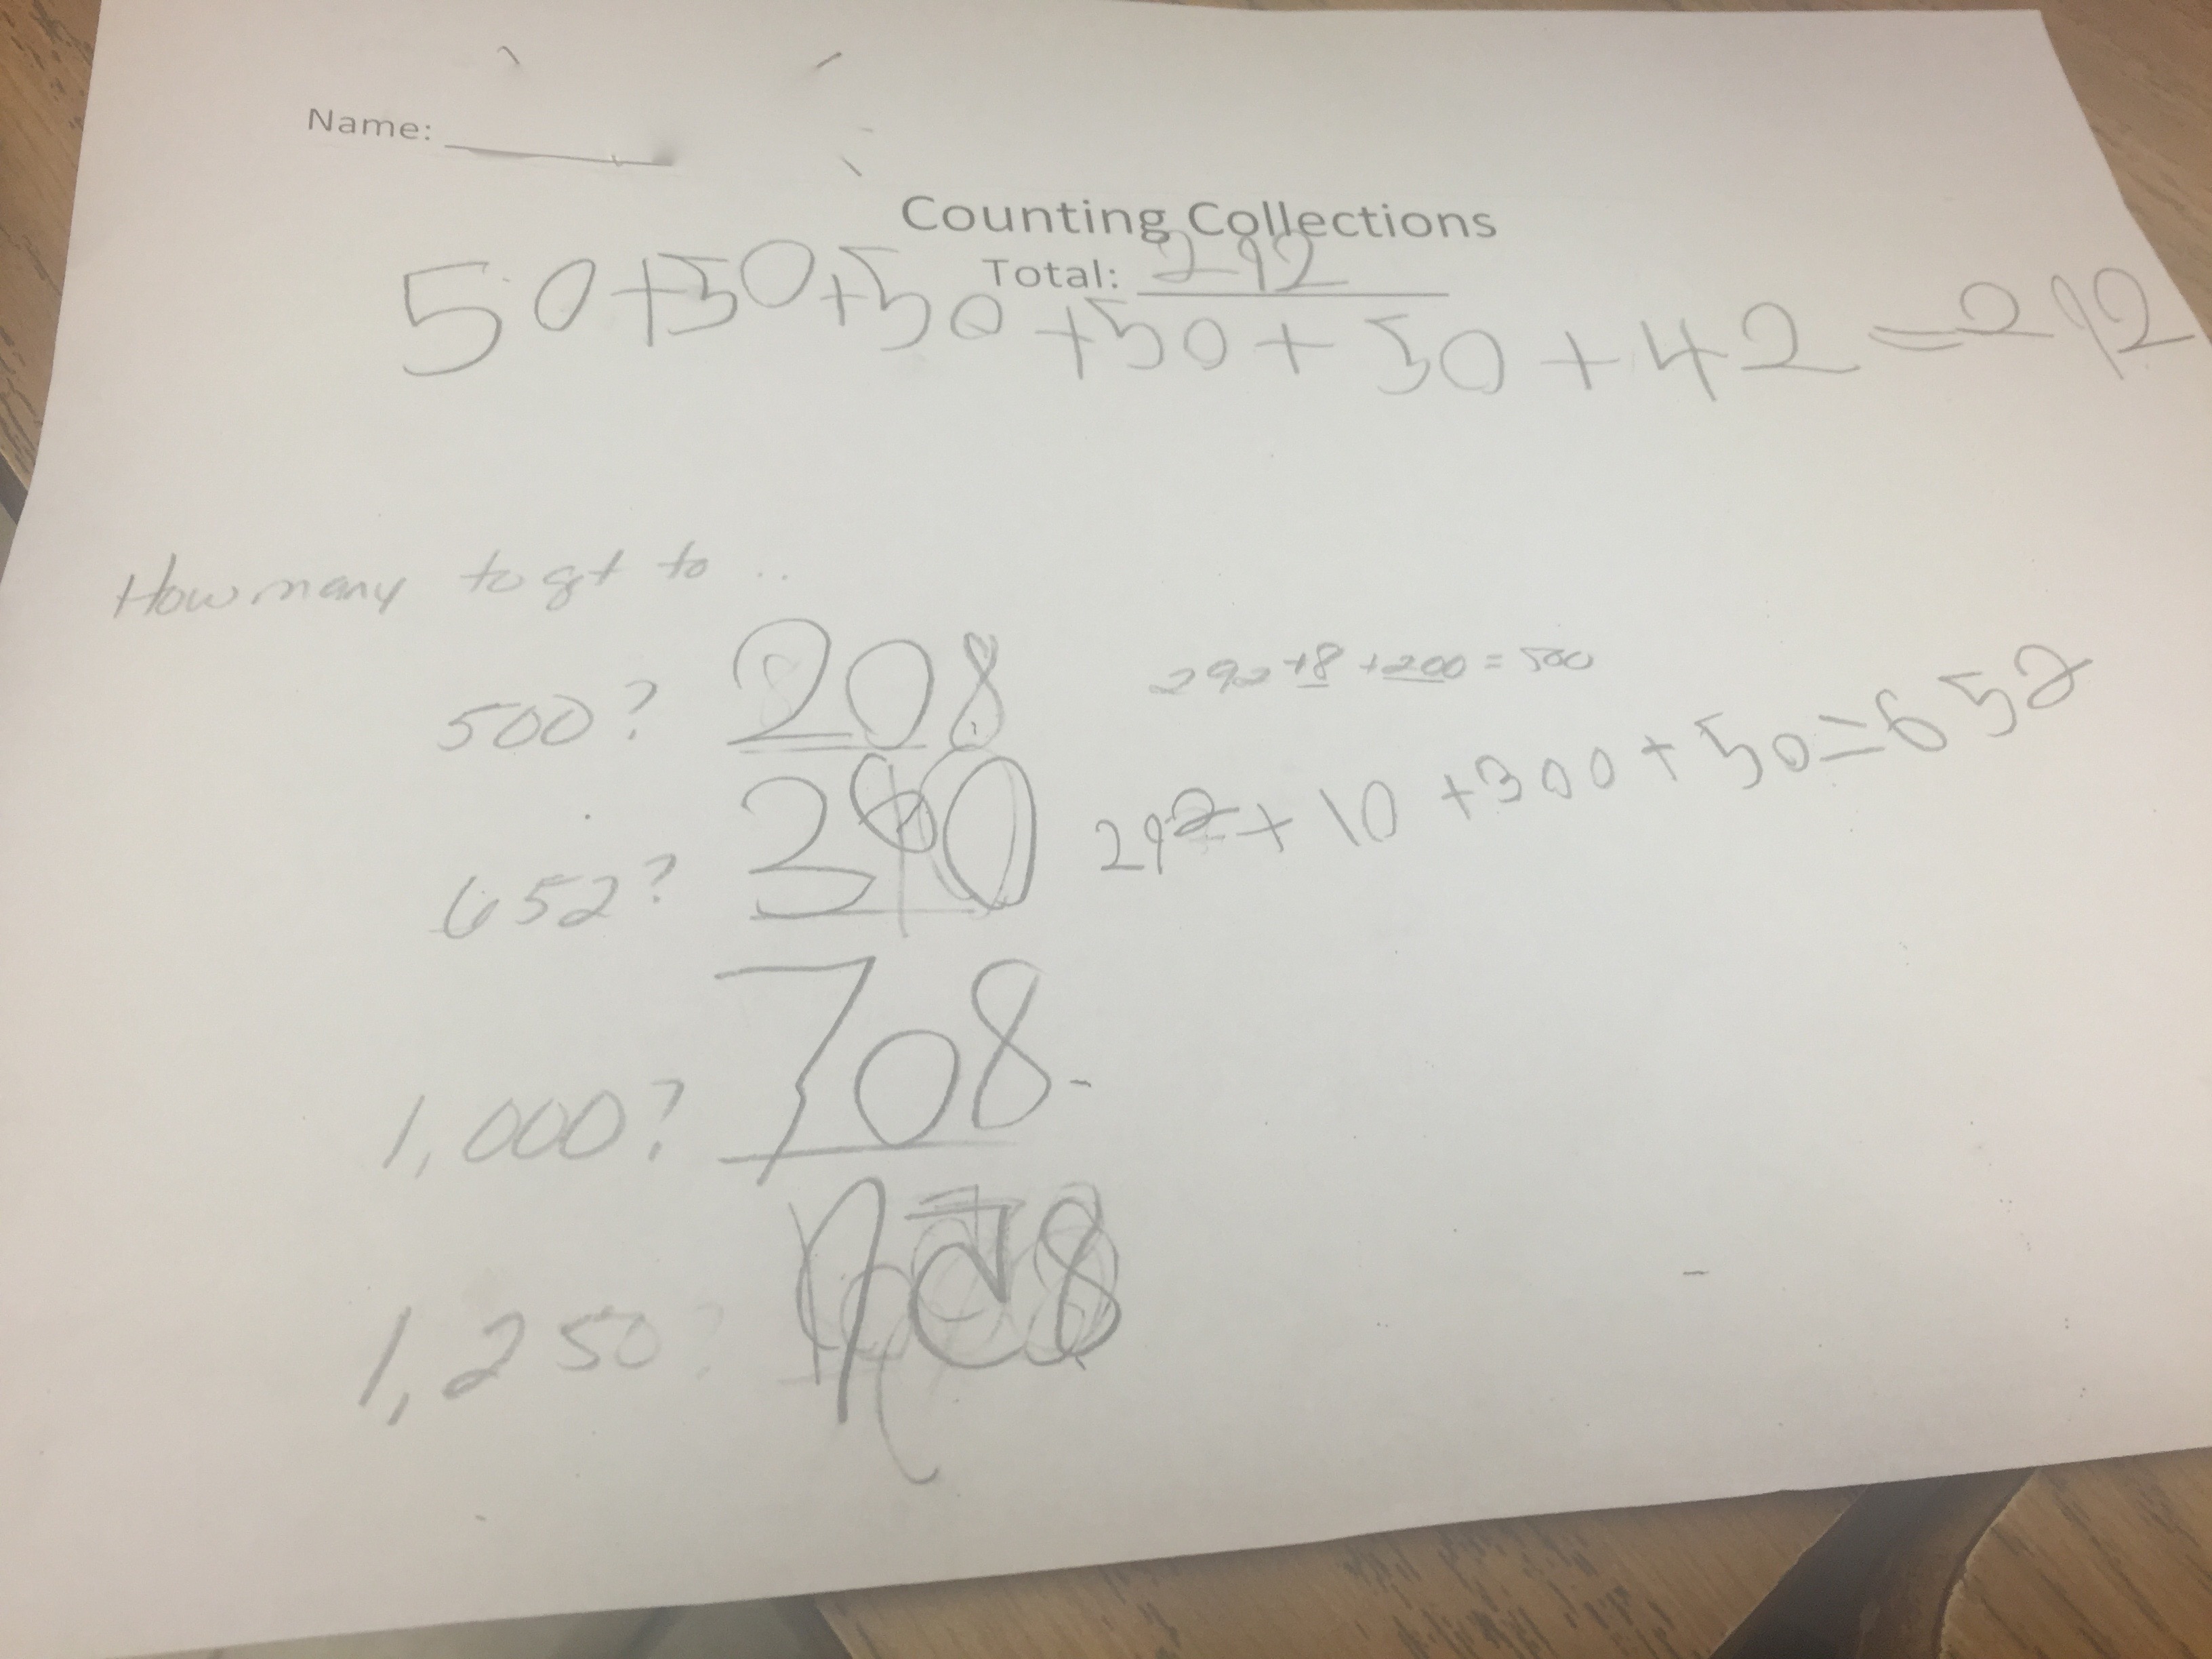 Name:
Counting Collections
Total: 292
50+50+50+50+50+42=292
How many to get to ..
500? 208 292+8+200=500
652? 292+10+300+50=652
1,000? 708
1,250?